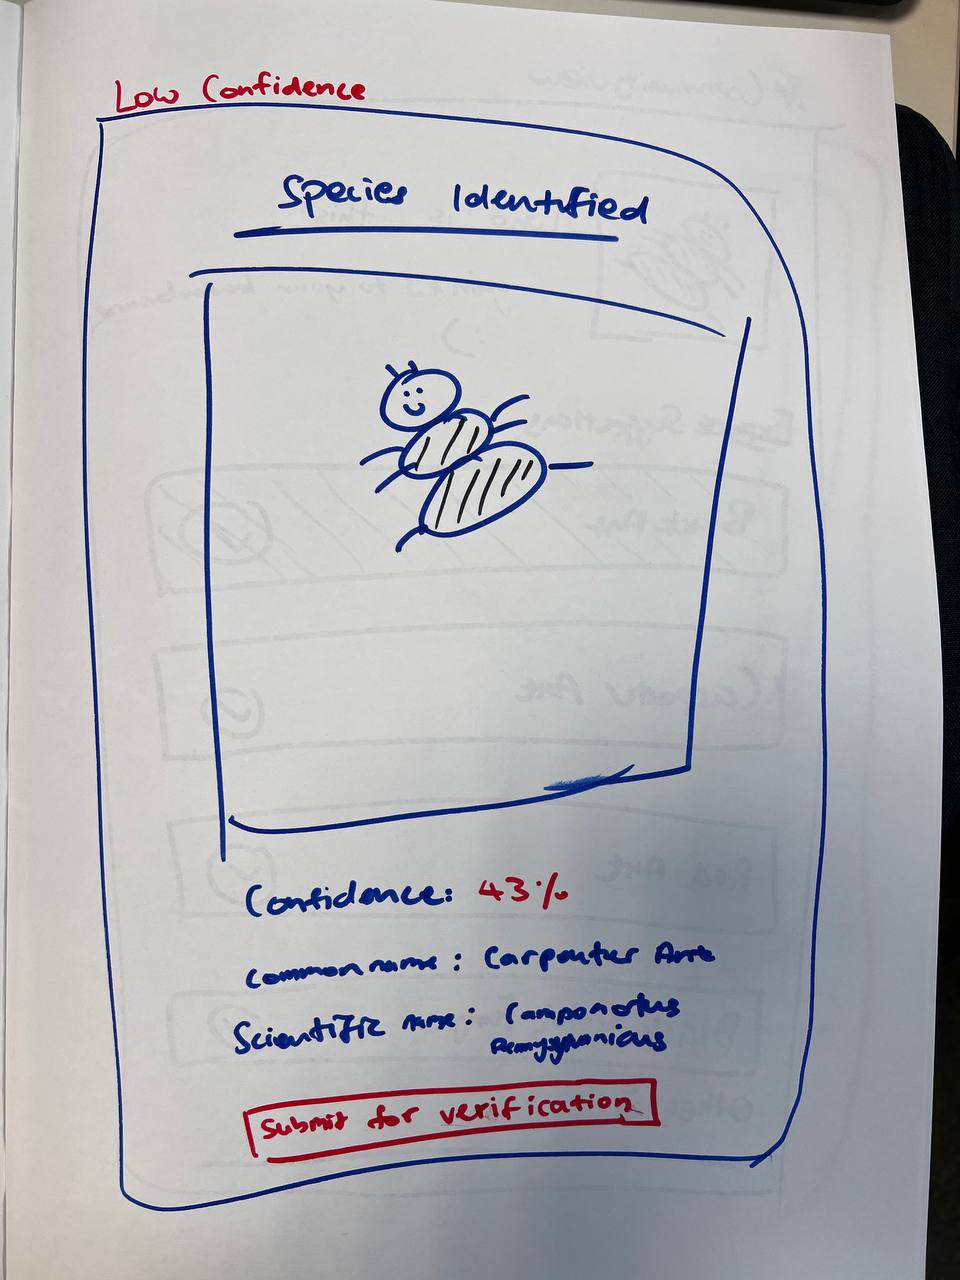 Low Confidence
Species Identified
Confidence: 43%
Common name: Carpenter Ant
Scientific name: Camponotus
Submit for verification